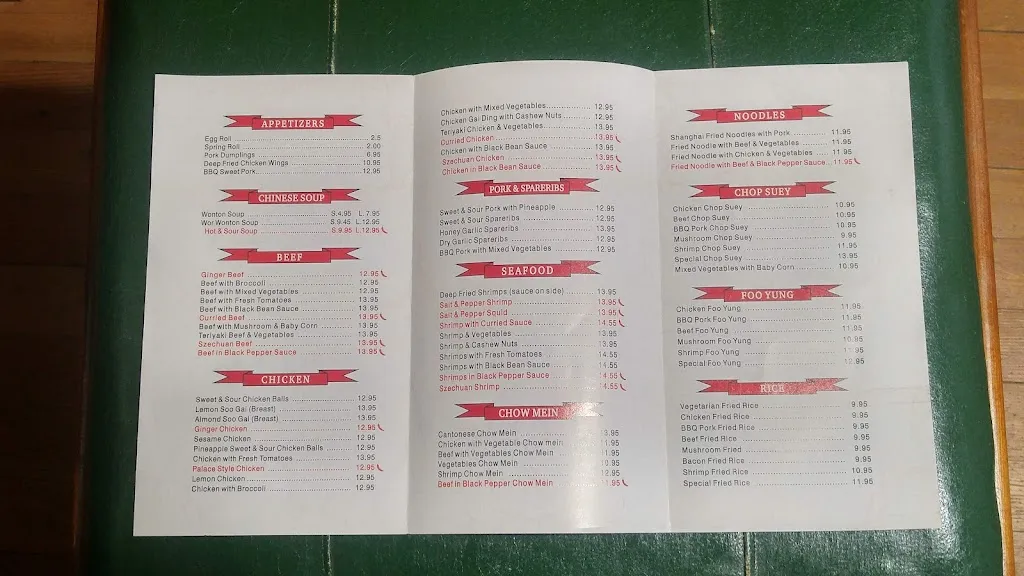 APPETIZERS
Egg Roll 2.5
Spring Roll 2.00
Pork Dumplings 6.95
Deep Fried Chicken Wings 10.95
BBQ Sweet Pork 12.95
CHINESE SOUP
Wonton Soup S.4.95 L.7.95
Wor Wonton Soup S.9.45 L.12.95
Hot & Sour Soup S.9.95 L.12.95
BEEF
Ginger Beef 12.95
Beef with Broccoli 12.95
Beef with Mixed Vegetables 12.95
Beef with Fresh Tomatoes 13.95
Beef with Black Bean Sauce 13.95
Curried Beef 13.95
Beef with Mushroom & Baby Corn 13.95
Teriyaki Beef & Vegetables 13.95
Szechuan Beef 13.95
Beef in Black Pepper Sauce 13.95
CHICKEN
Sweet & Sour Chicken Balls 12.95
Lemon Soo Gai (Breast) 13.95
Almond Soo Gai (Breast) 13.95
Ginger Chicken 12.95
Sesame Chicken 12.95
Pineapple Sweet & Sour Chicken Balls 12.95
Chicken with Fresh Tomatoes 13.95
Palace Style Chicken 12.95
Lemon Chicken 12.95
Chicken with Broccoli 12.95
Chicken with Mixed Vegetables 12.95
Chicken Gai Ding with Cashew Nuts 12.95
Teriyaki Chicken & Vegetables 13.95
Curried Chicken 13.95
Chicken with Black Bean Sauce 13.95
Szechuan Chicken 13.95
Chicken in Black Bean Sauce 13.95
PORK & SPARERIBS
Sweet & Sour Pork with Pineapple 12.95
Sweet & Sour Spareribs 12.95
Honey Garlic Spareribs 13.95
Dry Garlic Spareribs 12.95
BBQ Pork with Mixed Vegetables 12.95
SEAFOOD
Deep Fried Shrimps (sauce on side) 13.95
Salt & Pepper Shrimp 13.95
Salt & Pepper Squid 13.95
Shrimp with Curried Sauce 14.55
Shrimp & Vegetables 13.95
Shrimp & Cashew Nuts 13.95
Shrimps with Fresh Tomatoes 14.55
Shrimps with Black Bean Sauce 14.55
Shrimps in Black Pepper Sauce 14.55
Szechuan Shrimp 14.55
CHOW MEIN
Cantonese Chow Mein
Chicken with Vegetable Chow mein
Beef with Vegetables Chow Mein
Vegetables Chow Mein 10.95
Shrimp Chow Mein 12.95
Beef in Black Pepper Chow Mein
NOODLES
Shanghai Fried Noodles with Pork 11.95
Fried Noodle with Beef & Vegetables 11.95
Fried Noodle with Chicken & Vegetables 11.95
Fried Noodle with Beef & Black Pepper Sauce 11.95
CHOP SUEY
Chicken Chop Suey 10.95
Beef Chop Suey 10.95
BBQ Pork Chop Suey 10.95
Mushroom Chop Suey 9.95
Shrimp Chop Suey 11.95
Special Chop Suey 13.95
Mixed Vegetables with Baby Corn 10.95
FOO YUNG
Chicken Foo Yung 11.95
BBQ Pork Foo Yung 11.95
Beef Foo Yung 11.95
Mushroom Foo Yung 11.95
Shrimp Foo Yung
Special Foo Yung 12.95
RICE
Vegetarian Fried Rice 9.95
Chicken Fried Rice 9.95
BBQ Pork Fried Rice 9.95
Beef Fried Rice 9.95
Mushroom Fried 9.95
Bacon Fried Rice 9.95
Shrimp Fried Rice 10.95
Special Fried Rice 11.95